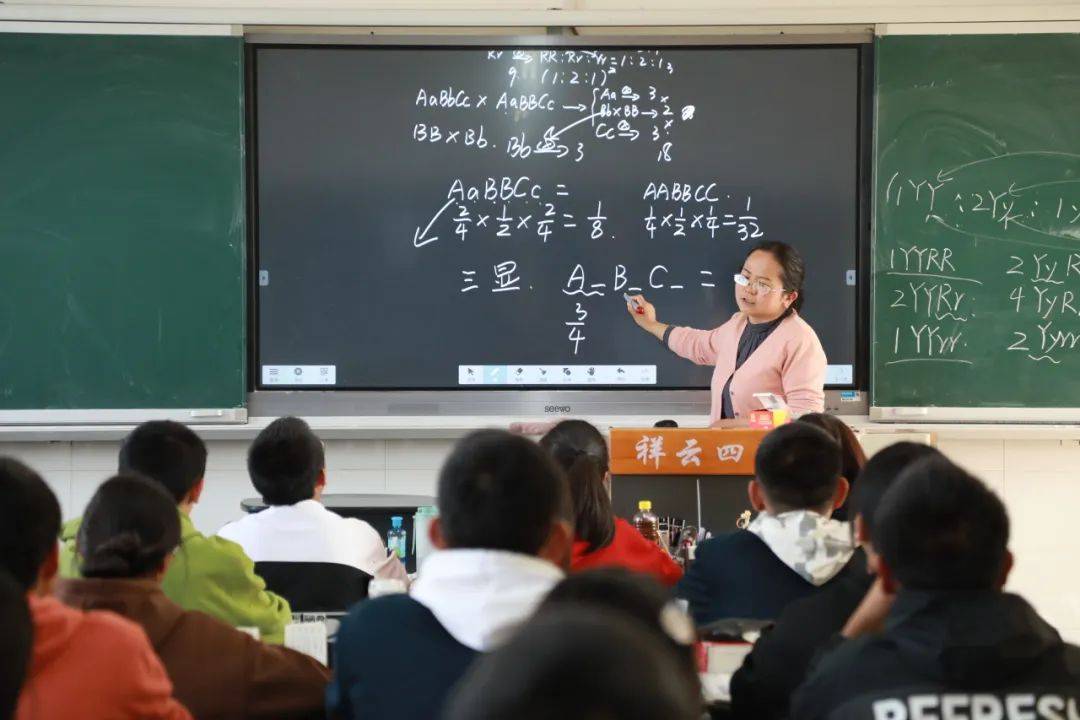 Rr → RR:Rr:rr=1:2:1
9. (1:2:1)²
AaBbCc × AaBBCc →
Aa → 3
×
Bb×BB → 2
×
Cc → 3
18
BB×Bb. Bb → 3
AaBBCc =
2/4 × 1/2 × 2/4 = 1/8.
AABBCC.
1/4 × 1/2 × 1/4 = 1/32
三显. A_ B_ C_ =
3/4
seewo
(1YY : 2Yy : 1y
1YYRR
2YYRr
1YYrr
2YyR
4YyR
2Yyrr
祥云四
REFRESH